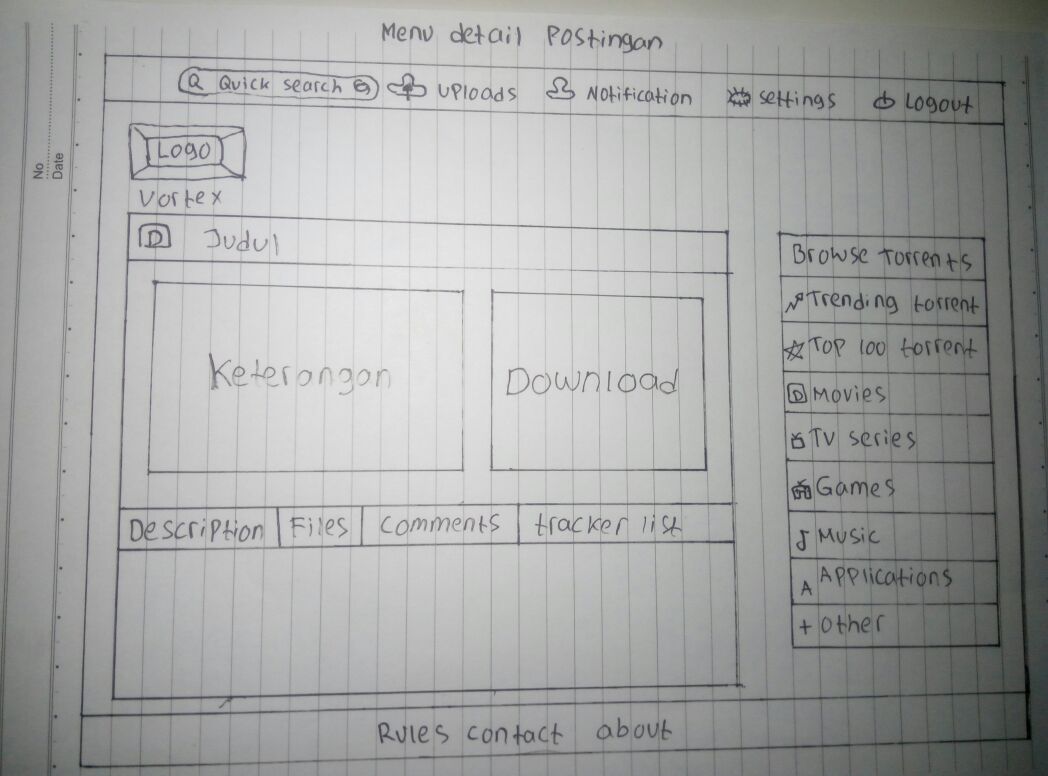 Menu detail Postingan
Quick search Uploads Notification settings Logout
Logo
Vortex
D Judul
Keterangan
Download
Description Files comments tracker list
Browse torrents
Trending torrent
Top 100 torrent
D Movies
TV series
Games
Music
A Applications
+ Other
Rules contact about
No
Date